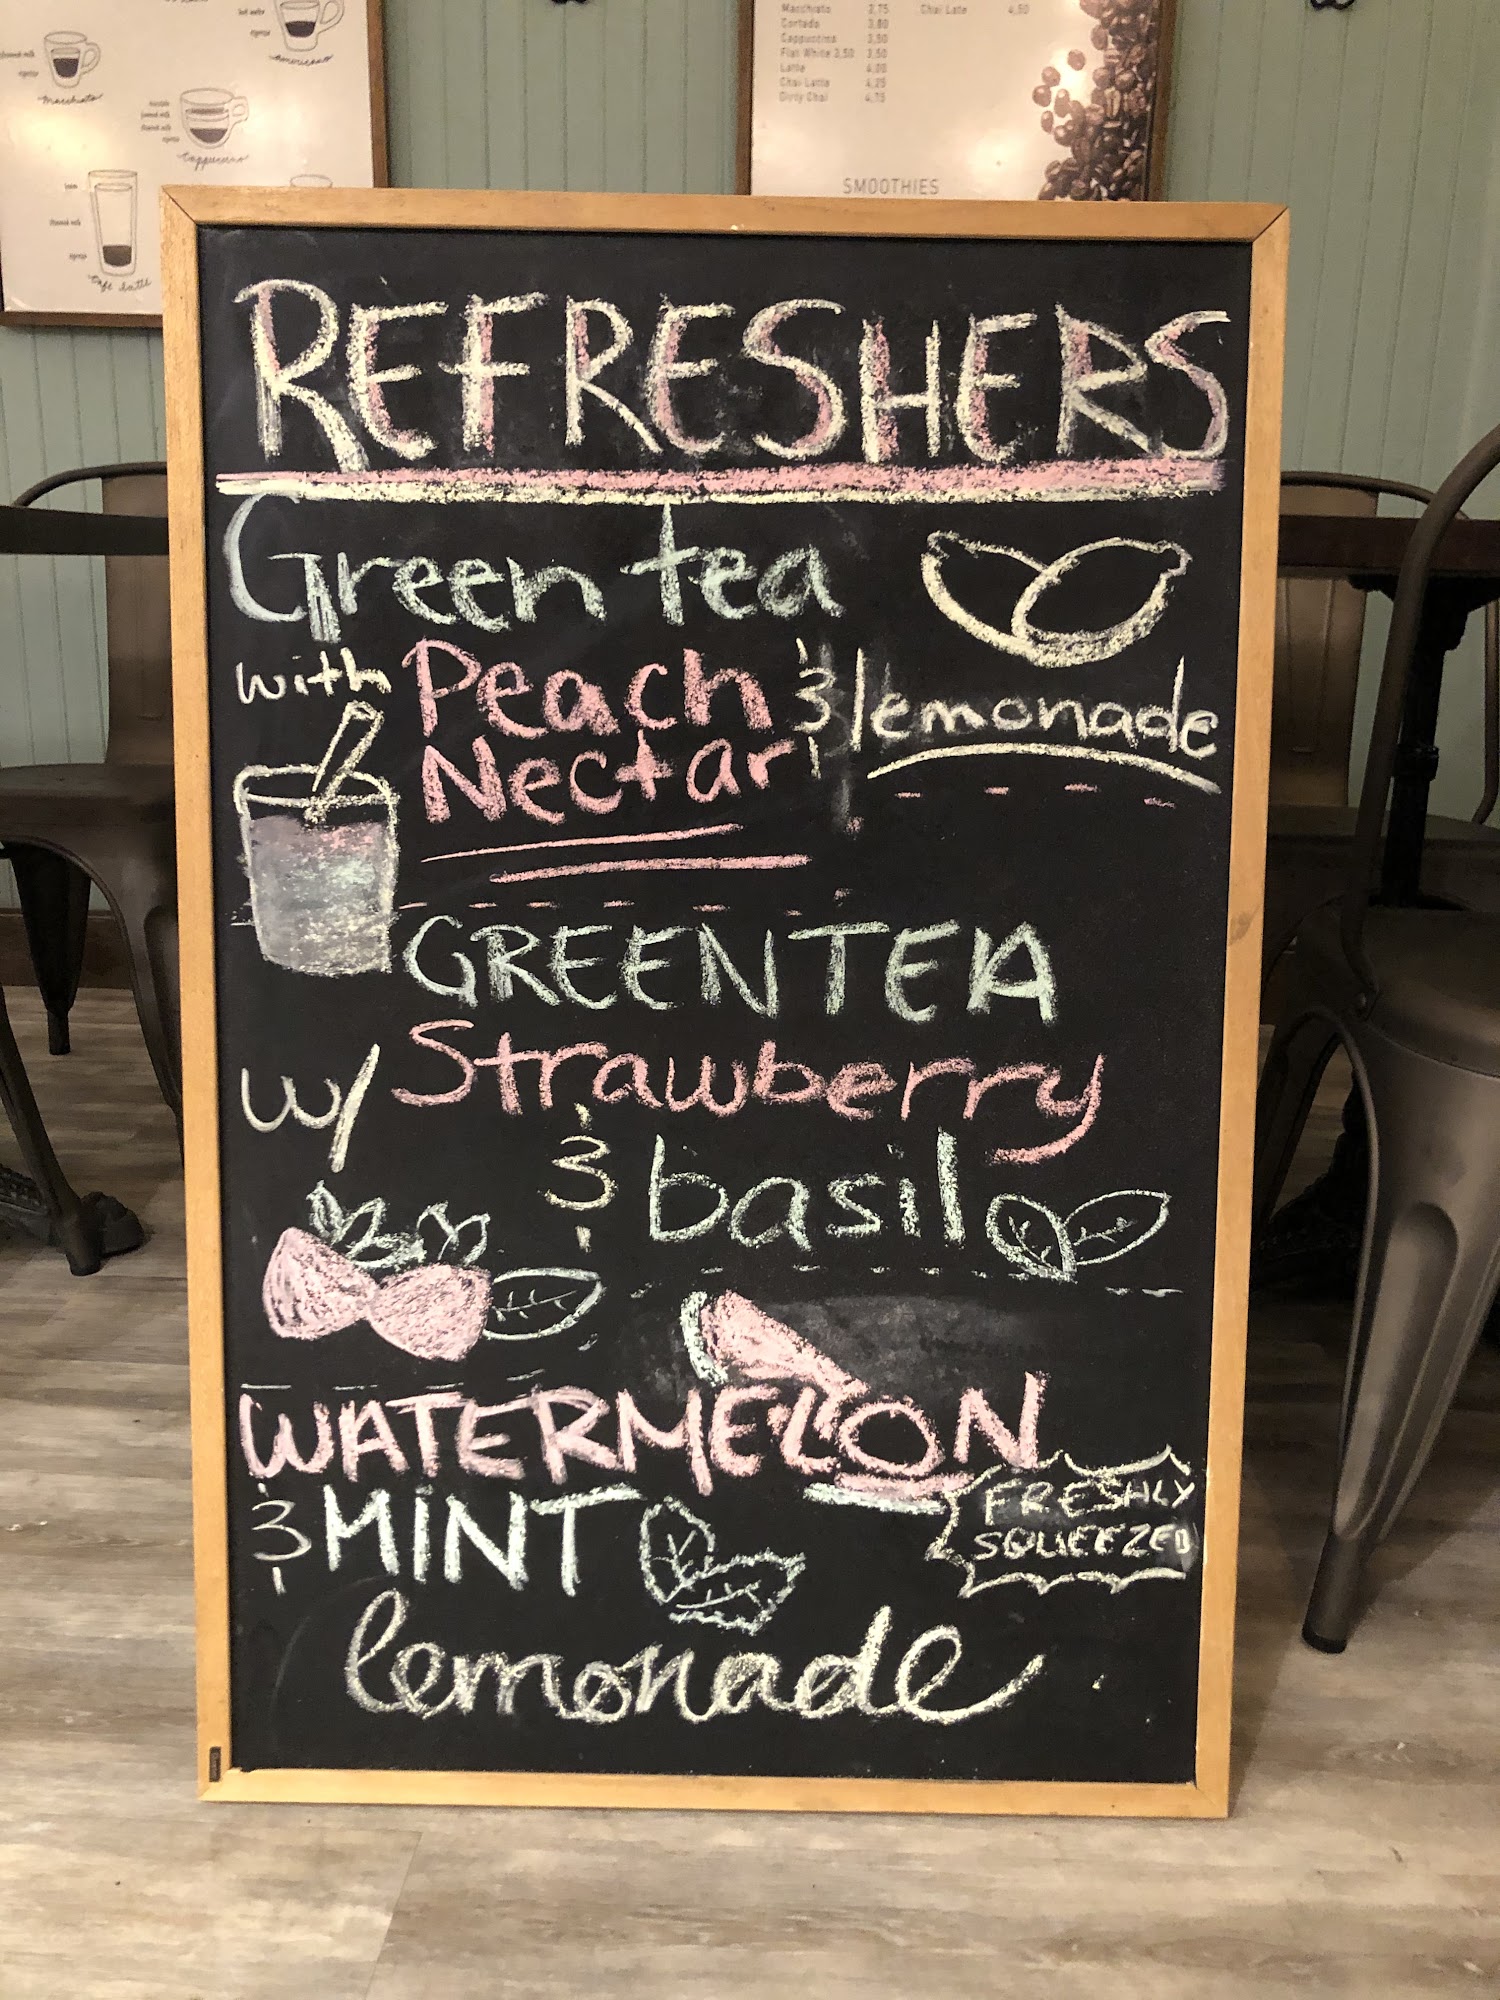 Macchiato 3,75
Cortado 3,80
Cappuccino 3,50
Flat White 3,50 3,50
Latte 4,00
Chai Latte 4,25
Dirty Chai 4,75
Chai Late 4,50
SMOOTHIES
espresso
Americano
Macchiato
Cappuccino
Cafe Latte
REFRESHERS
Green tea
with Peach & lemonade
Nectar
GREEN TEA
w/ Strawberry
& basil
WATERMELON
& MINT
FRESHLY
SQUEEZED
lemonade